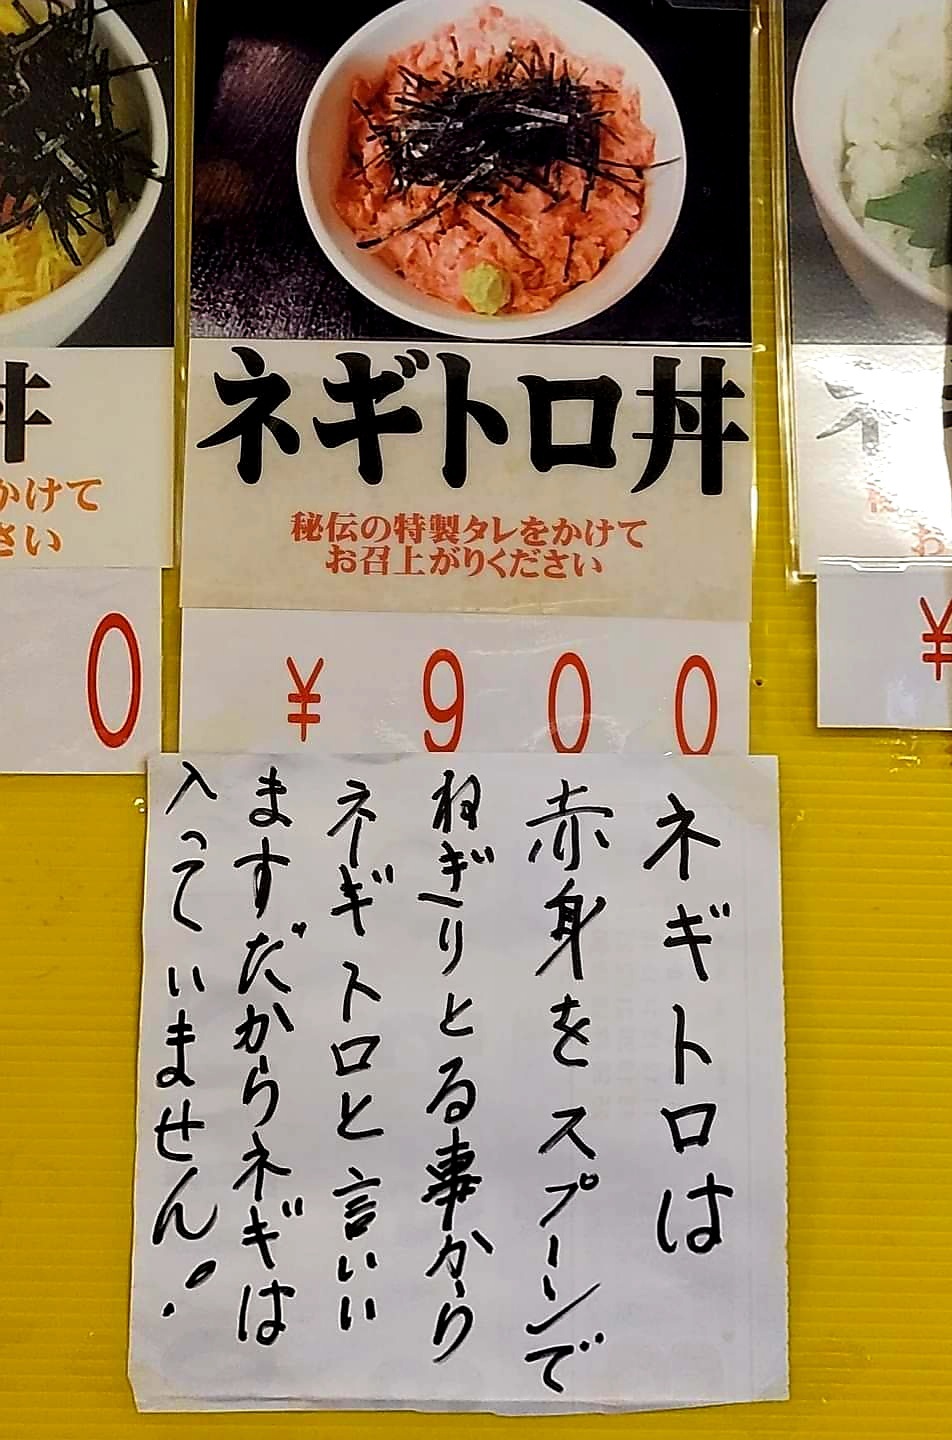 丼
かけて
さい
0
ネギトロ丼
秘伝の特製タレをかけて
お召上がりください
¥900
ネ
お
¥
ネギトロは
赤身をスプーンで
ねぎりとる事から
ネギトロと言いい
ますだからネギは
入っていません!